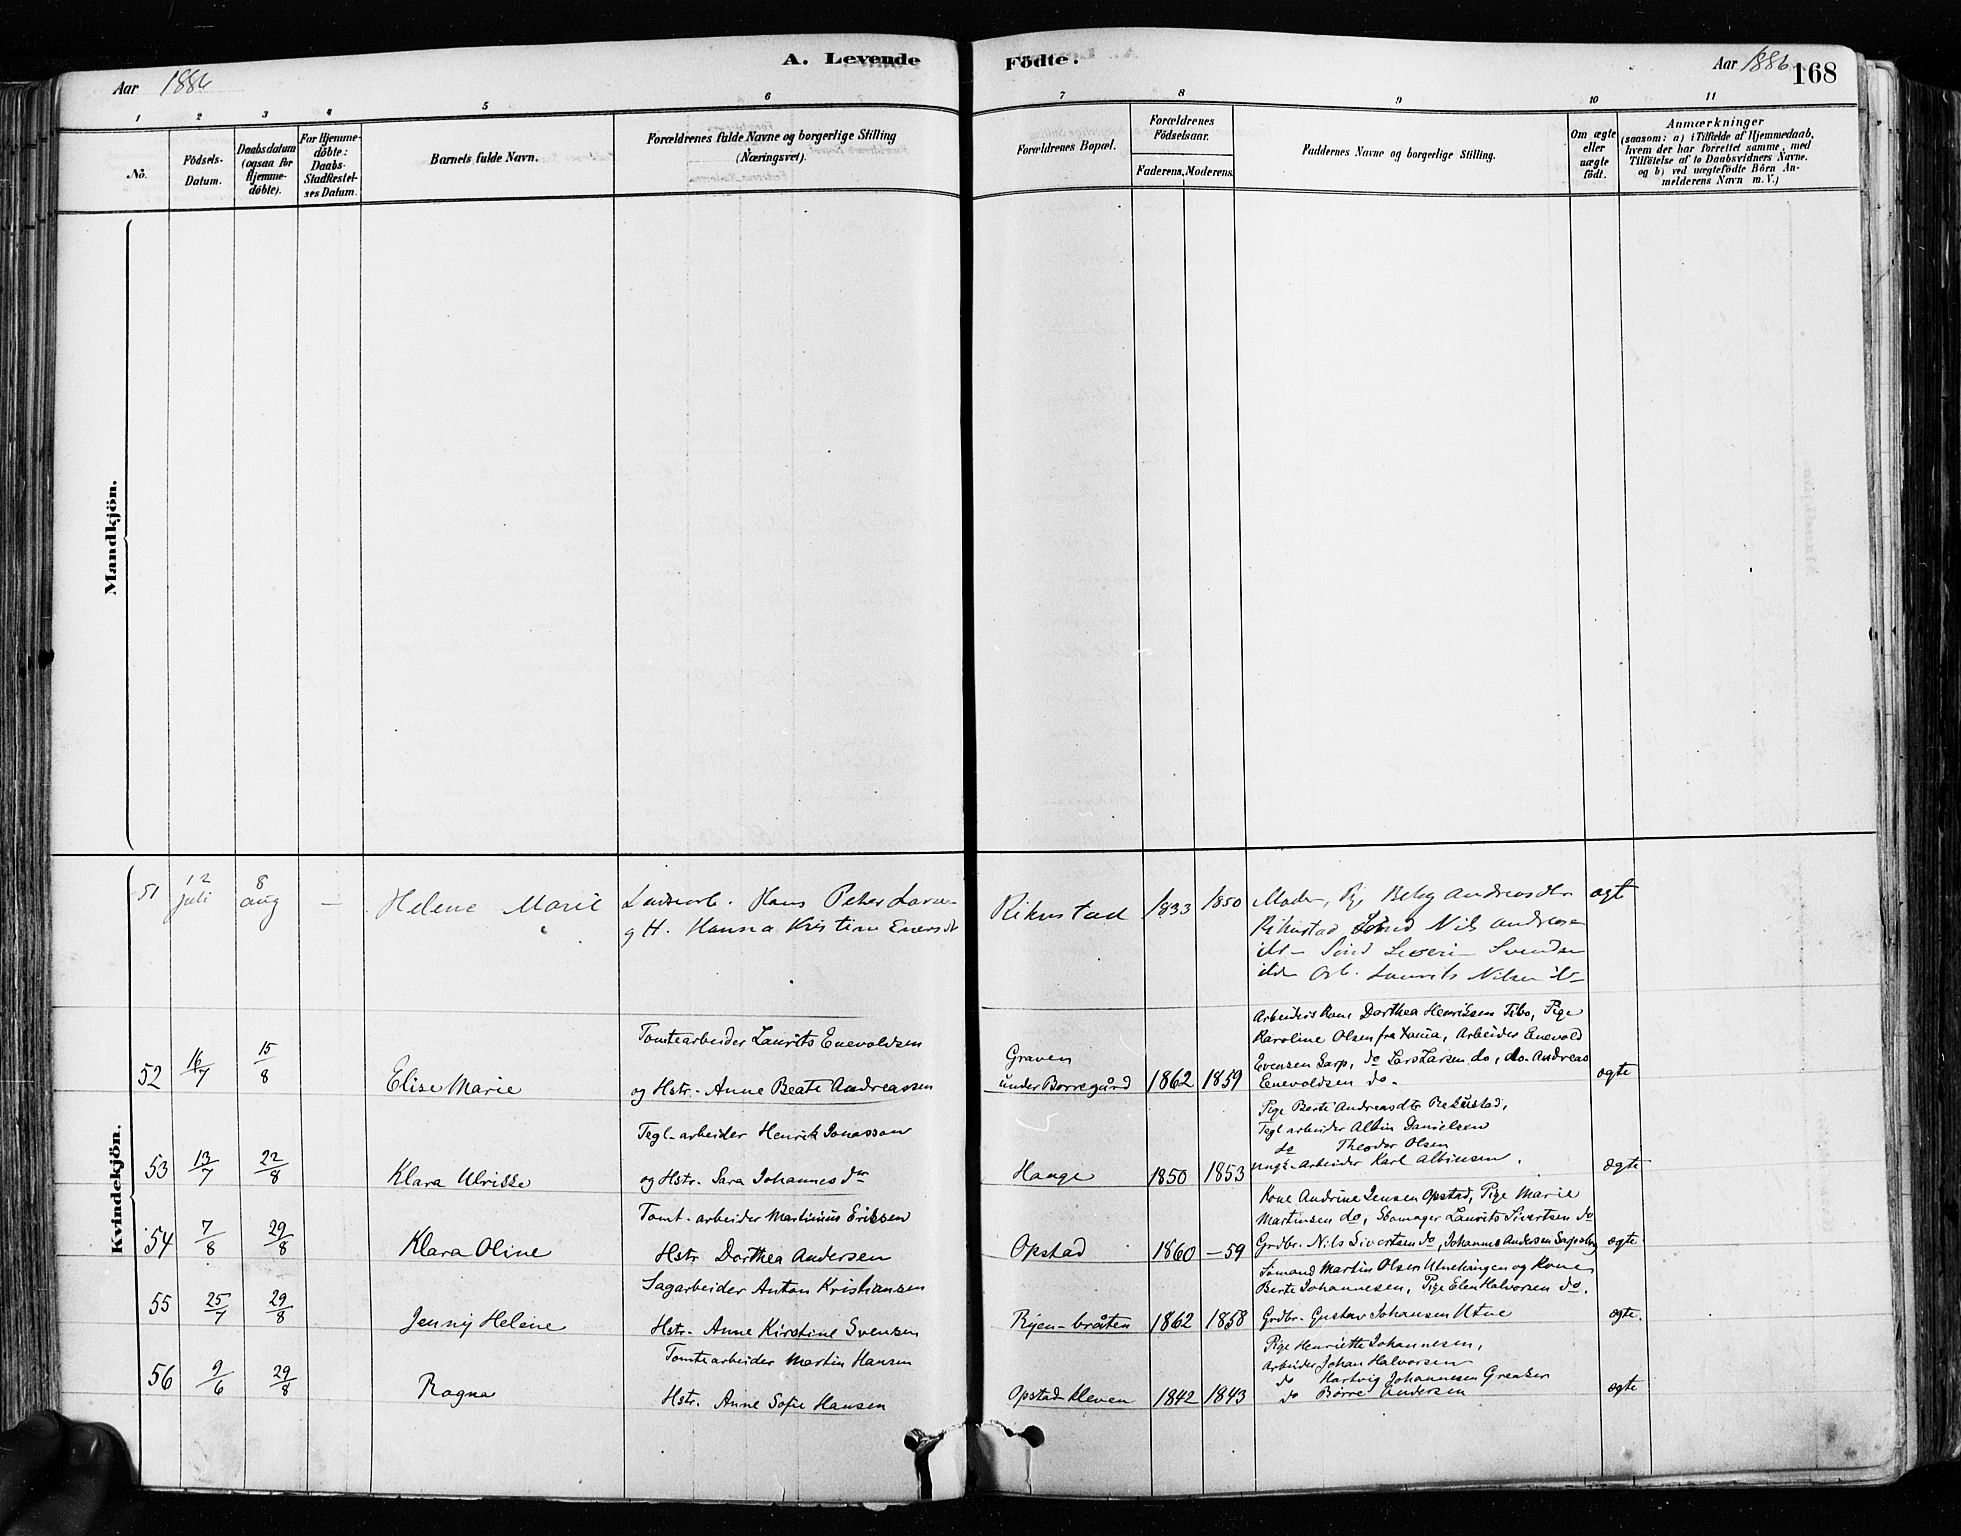 A. Levende Födte.
Aar 1886
Aar 1886
168
1 2 3 4 5 6 7 8 9 10 11
No.
Födsels-Datum.
Daabsdatum (ogsaa for Hjemmedöbte).
For Hjemmedöbte: Daabs-Stadfæstelses Datum.
Barnets fulde Navn.
Forældrenes fulde Navne og borgerlige Stilling (Næringsvei).
Forældrenes Bopæl.
Forældrenes Födselsaar.
Faderens. Moderens.
Faddernes Navne og borgerlige Stilling.
Om ægte eller uægte födt.
Anmærkninger
(saasom: a) i Tilfælde af Hjemmedaab,
hvem der har forrettet samme, med
Tilföielse af to Daabsvidners Navne.
og b) ved uægtefödte Börn An-
melderens Navn m. V.)
Mandkjön.
Kvindekjön.
51 12 juli 8 aug — Helene Marie
Hans Peter Larsen
og H. Hanna Kristine
Rikustad 1833 1850
Moder, Pg. Andreasdtr
Rikustad Nils Andreasen
Severin Svendsen
Arb. Laurits Nilsen
ægte
52 16/7 15/8 Elise Marie
Tomtearbeider Laurits Enevoldsen
og Hstr. Anne Beate Andreassen
Graven
under Borregård 1862 1859
Arbeiders Kone Dorthea Henriksen Tibo, Pige
Karoline Olsen fra Tanua, Arbeider Enevold
Evensen Sarp, do Lars Larsen do, do. Andreas
Enevoldsen do.
ægte
53 13/7 22/8 Klara Ulrikke
Tegl-arbeider Henrik Jonasson
og Hstr. Sara Johannesdtr
Hauge 1850 1853
Pige Berte Andreasdtr Rekustad,
Tegl arbeider Albin Danielsen
do Theodor Olsen
ungk. Arbeider Karl Albinsen.
ægte
54 7/8 29/8 Klara Oline
Tomt-arbeider Martinius Eriksen
Hstr. Dorthea Andersen
Opstad 1860 —59
Kone Andrine Jensen Opstad, Pige Marie
Martinsen do, Skomager Laurits Sivertsen do
Grdbr. Nils Sivertsen do, Johannes Andersen Sapsborg
ægte
55 25/7 29/8 Jenny Helene
Sagarbeider Anton Kristiansen
Hstr. Anne Kirstine Svensen
Ryen-bråten 1862 1858
Sømand Martin Olsen Utnehaugen og Kone
Berte Johannesen, Pige Elen Halvorsen do.
Grdbr. Gustav Johansen Utne
ægte.
56 9/6 29/8 Ragna
Tomtearbeider Martin Hansen
Hstr. Anne Sofie Hansen
Opstad kleven 1842 1843
Pige Henriette Johannesen,
Arbeider Johan Halvorsen
do Hartvig Johannesen Greaker
do Børre Andersen
ægte